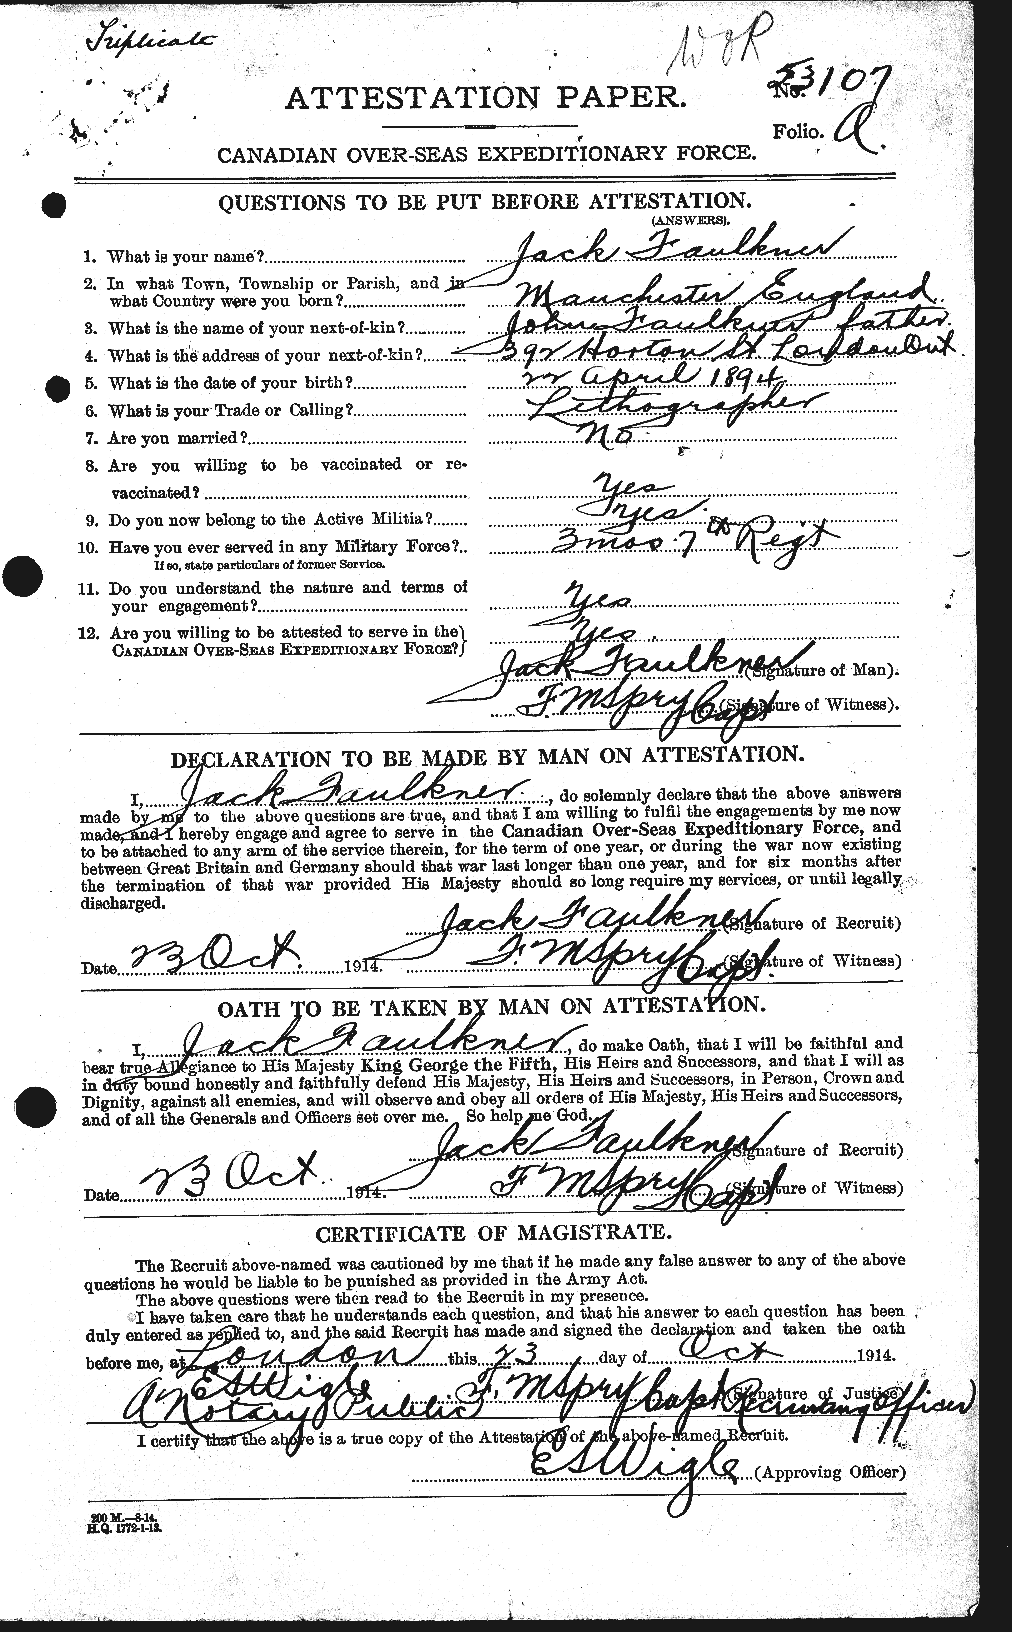 Triplicate
W O R
No. 53107
ATTESTATION PAPER.
Folio. A.
CANADIAN OVER-SEAS EXPEDITIONARY FORCE.
QUESTIONS TO BE PUT BEFORE ATTESTATION.
(ANSWERS).
1. What is your name? Jack Faulkner
2. In what Town, Township or Parish, and in
what Country were you born? Manchester England.
3. What is the name of your next-of-kin? John Faulkner father.
4. What is the address of your next-of-kin? 392 Horton St London Ont.
5. What is the date of your birth? 22 April 1894
6. What is your Trade or Calling? Lithographer
7. Are you married? No
8. Are you willing to be vaccinated or re-
vaccinated? Yes
9. Do you now belong to the Active Militia? Yes.
10. Have you ever served in any Military Force? 3 mos 7th Regt
If so, state particulars of former Service.
11. Do you understand the nature and terms of
your engagement? Yes
12. Are you willing to be attested to serve in the
CANADIAN OVER-SEAS EXPEDITIONARY FORCE? Yes.
Jack Faulkner (Signature of Man).
F. M Spry Capt (Signature of Witness).
DECLARATION TO BE MADE BY MAN ON ATTESTATION.
I, Jack Faulkner, do solemnly declare that the above answers
made by me to the above questions are true, and that I am willing to fulfil the engagements by me now
made, and I hereby engage and agree to serve in the Canadian Over-Seas Expeditionary Force, and
to be attached to any arm of the service therein, for the term of one year, or during the war now existing
between Great Britain and Germany should that war last longer than one year, and for six months after
the termination of that war provided His Majesty should so long require my services, or until legally
discharged.
Jack Faulkner (Signature of Recruit)
Date 23 Oct. 1914. F. M Spry Capt. (Signature of Witness)
OATH TO BE TAKEN BY MAN ON ATTESTATION.
I, Jack Faulkner, do make Oath, that I will be faithful and
bear true Allegiance to His Majesty King George the Fifth, His Heirs and Successors, and that I will as
in duty bound honestly and faithfully defend His Majesty, His Heirs and Successors, in Person, Crown and
Dignity, against all enemies, and will observe and obey all orders of His Majesty, His Heirs and Successors,
and of all the Generals and Officers set over me. So help me God.
Jack Faulkner (Signature of Recruit)
Date 23 Oct 1914. F. M Spry Capt (Signature of Witness)
CERTIFICATE OF MAGISTRATE.
The Recruit above-named was cautioned by me that if he made any false answer to any of the above
questions he would be liable to be punished as provided in the Army Act.
The above questions were then read to the Recruit in my presence.
I have taken care that he understands each question, and that his answer to each question has been
duly entered as replied to, and the said Recruit has made and signed the declaration and taken the oath
before me, at London this 23 day of Oct 1914.
E S Wigle F. M Spry Capt Recruiting Officer (Signature of Justice)
A Notary Public
I certify that the above is a true copy of the Attestation of the above-named Recruit.
E S Wigle (Approving Officer)
200 M.—8-14.
H.Q. 1772-1-13.